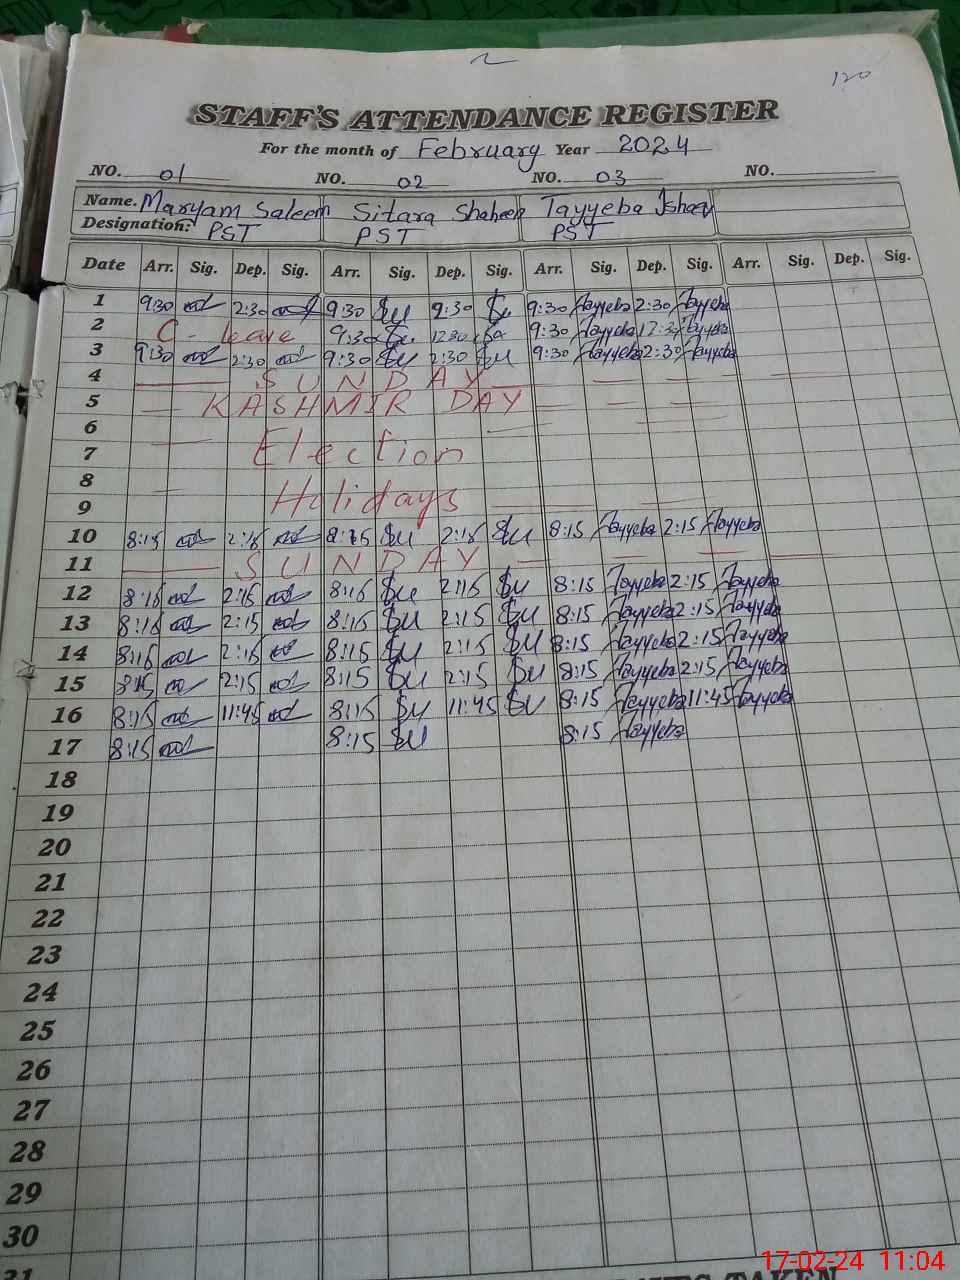 120
STAFF'S ATTENDANCE REGISTER
For the month of February Year 2024
NO. 01 NO. 02 NO. 03 NO.
Name. Maryam Saleem Sitara Shaheen Tayyeba
Designation: PST PST PST
Date Arr. Sig. Dep. Sig. Arr. Sig. Dep. Sig. Arr. Sig. Dep. Sig. Arr. Sig. Dep. Sig.
1 9:30 2:30 9:30 9:30 9:30 Tayyeba 2:30 Tayyeba
2 C - leave 9:30 12:30 9:30 Tayyeba 12:30 Tayyeba
3 9:30 2:30 9:30 2:30 9:30 Tayyeba 2:30 Tayyeba
4 SUNDAY
5 KASHMIR DAY
6
7 Election
8
9 Holidays
10 8:15 2:15 8:15 2:15 8:15 Tayyeba 2:15 Tayyeba
11 SUNDAY
12 8:15 2:15 8:15 2:15 8:15 Tayyeba 2:15 Tayyeba
13 8:15 2:15 8:15 2:15 8:15 Tayyeba 2:15 Tayyeba
14 8:15 2:15 8:15 2:15 8:15 Tayyeba 2:15 Tayyeba
15 8:15 2:15 8:15 2:15 8:15 Tayyeba 2:15 Tayyeba
16 8:15 11:45 8:15 11:45 8:15 Tayyeba 11:45 Tayyeba
17 8:15 8:15 8:15 Tayyeba
18
19
20
21
22
23
24
25
26
27
28
29
30
31
TAKEN
17-02-24 11:04